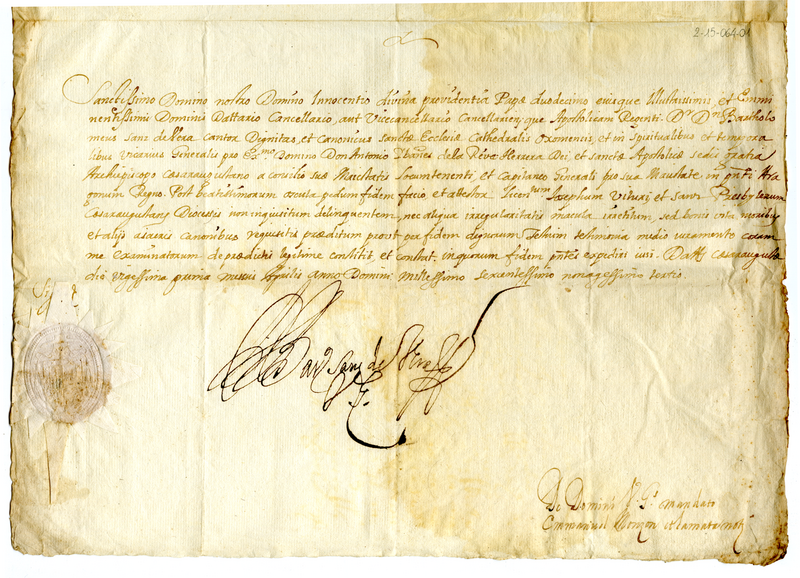 2-15-064-01
Sanctissimo Domino nostro Domino Innocentio divina providentia Papæ duodecimo eiusque Illustissimis, et Emmi
nentissimi Dominis Dattario Cancellario, aut Vicecancellario Cancellareu, que Apostolicam Regenti. Dr. Dn. Bartholo
meus Sanz de Vera cantor Dignitas, et canonicus sanctæ Ecclesiæ Cathedralis Oxomensis, et in Spiritualibus et tempora
libus Vicarius Generalis pro Exmo. Domino Don Antonio Ibañes de la Riva Herrera Dei, et sanctæ Apostolicæ sedis gratia
Archiepiscopo Cæsaraugustano a consilio suæ Maiestatis Locumtenenti et Capitaneo Generali pro sua Maiestate, in pnti Ara
gonum Regno. Post beatissimorum oscula pedum fidem facio, et attestor Licentum Josephum Vituri et Sanz Presbyterum
Cæsaraugustanæ Diocesis non inquisitum delinquentem, nec aliqua irregularitatis macula irretitum, sed bonis vita moribus
et alijs à sacris canonibus requisitis præditum prout per fidem dignorum Testium testimonia medio iuramento coram
me examinatorum de prædictis legitime constitit, et constat, in quorum fidem pntes expediri iusi. Datt. Cæsaraugustæ
die vigessima prima mensis Aprilis anno Domini Millessimo sexcentessimo nonagessimo tertio
Dr. Bar. Sanz de Vera
V. G.
De Domini V. Gs. mandato
Emmanuel Monzon et Lamata not.